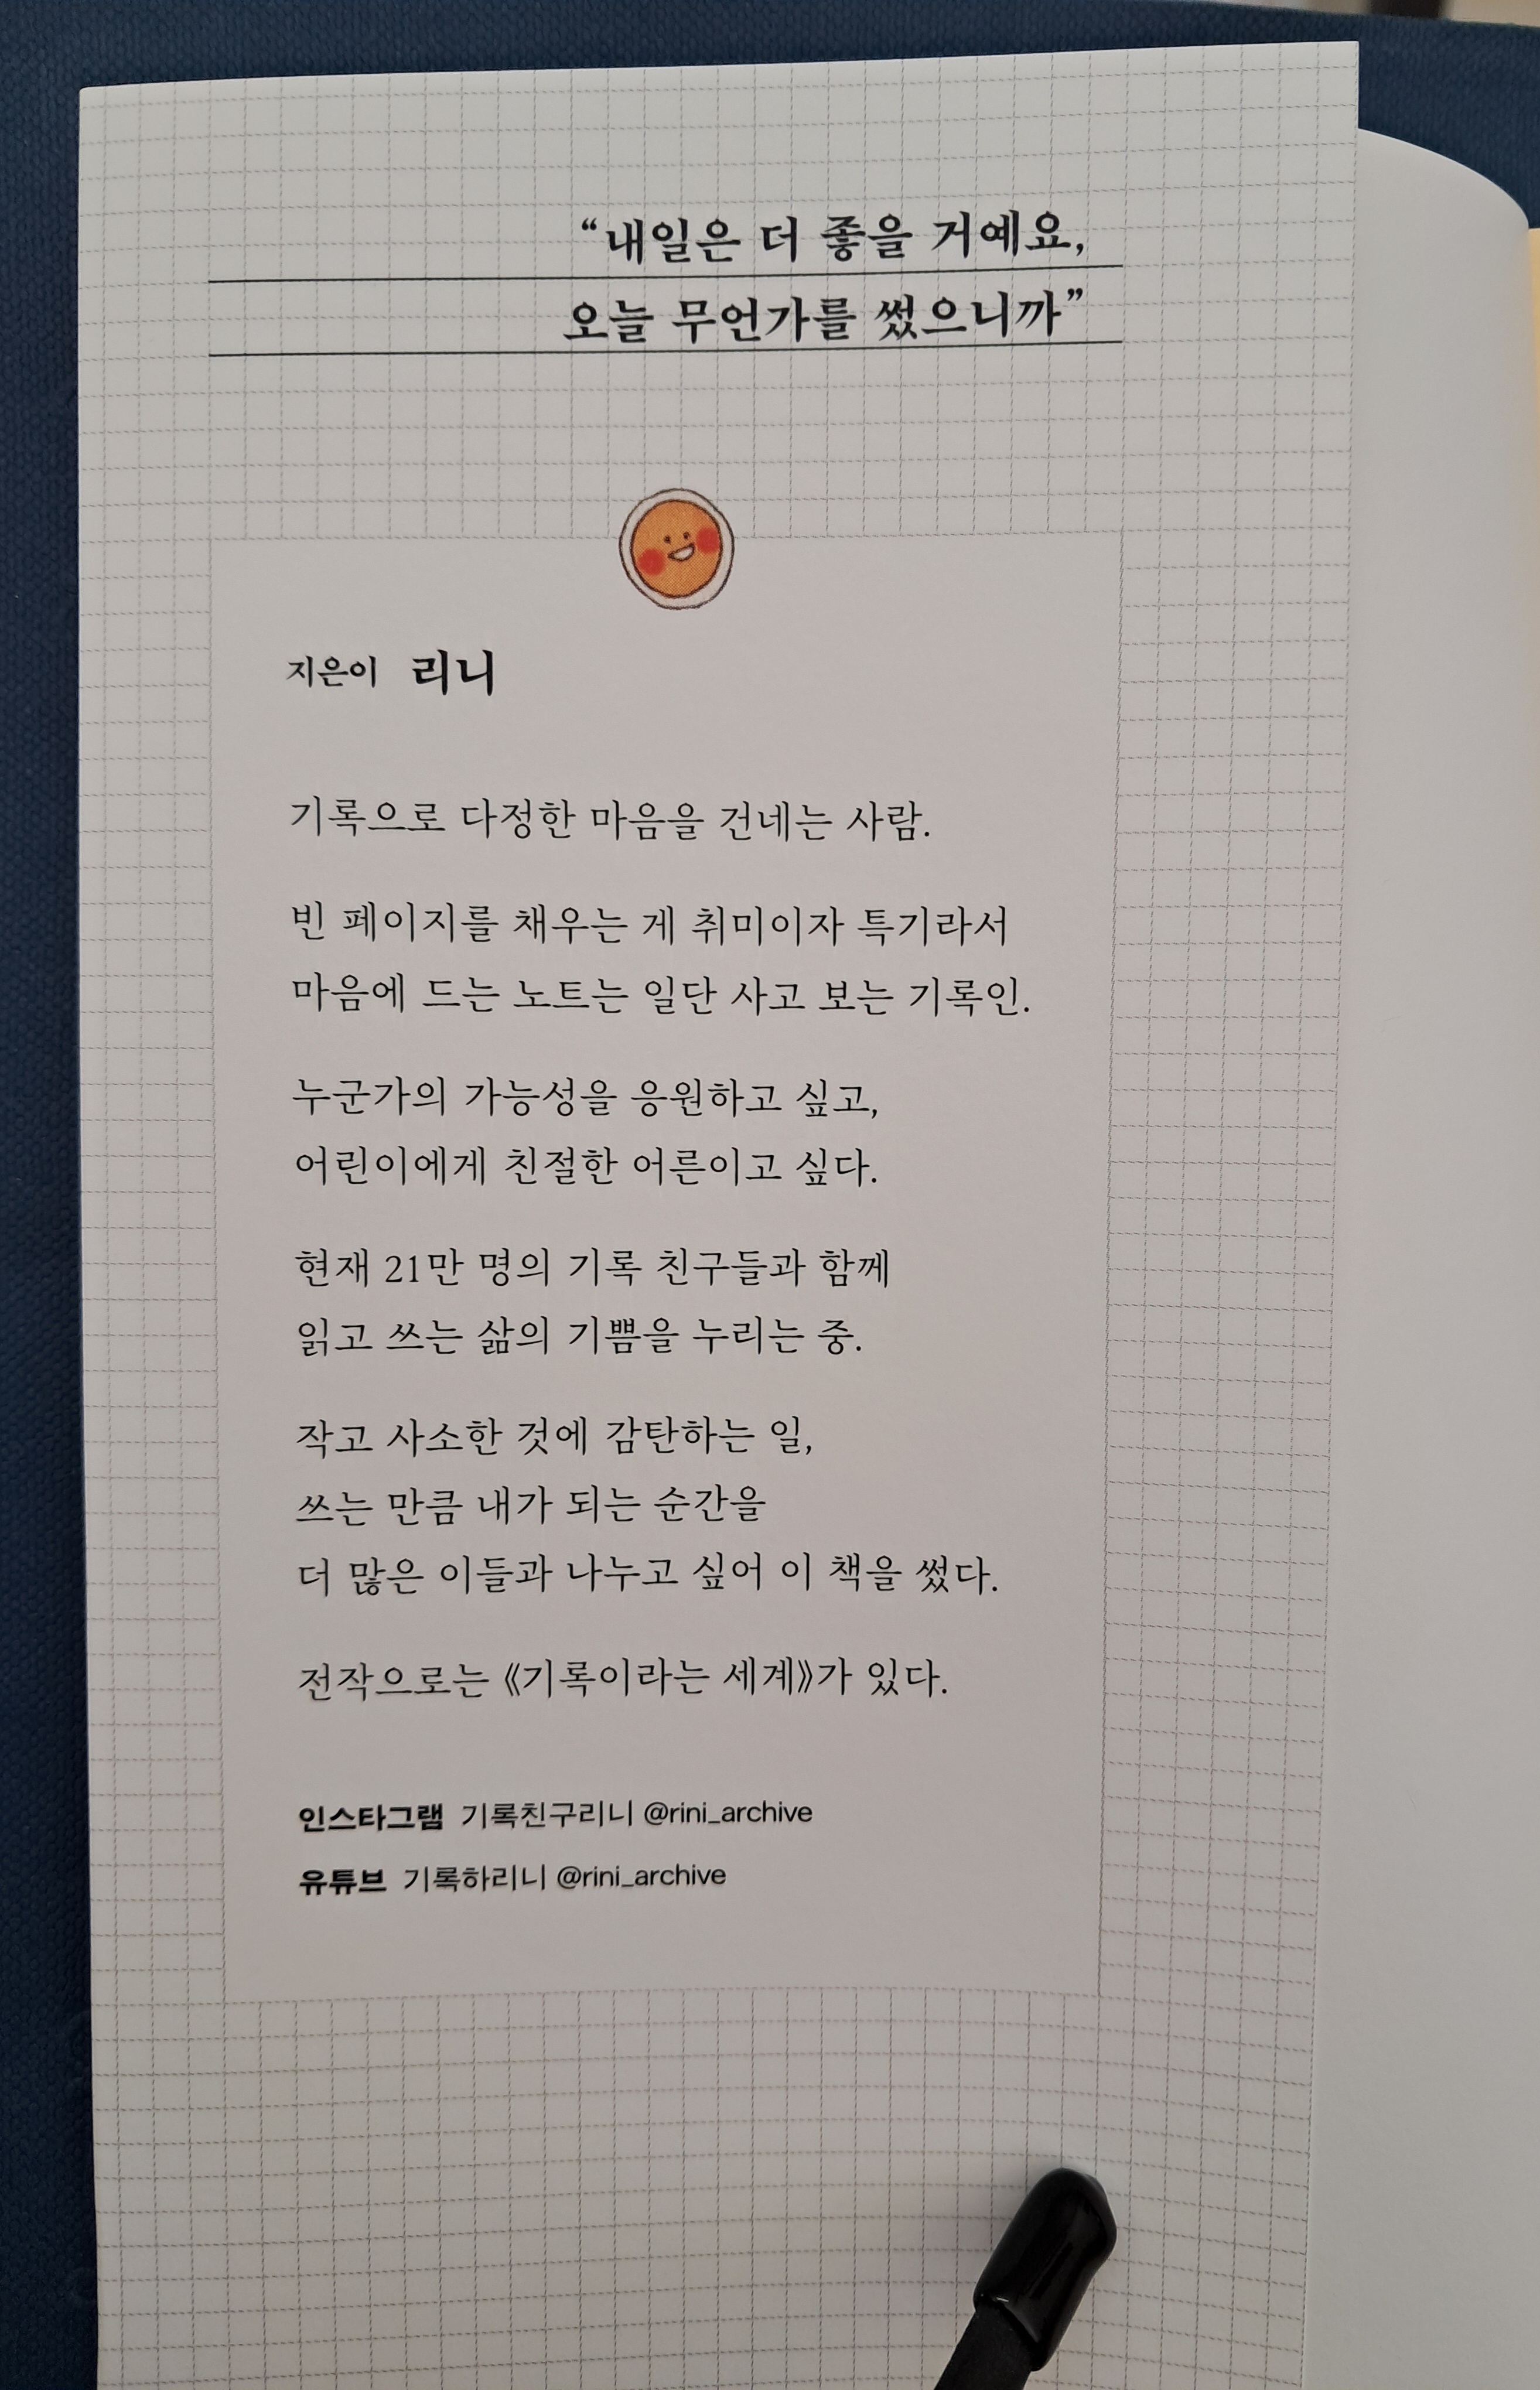 “내일은 더 좋을 거예요,
오늘 무언가를 썼으니까”
지은이 리니
기록으로 다정한 마음을 건네는 사람.
빈 페이지를 채우는 게 취미이자 특기라서
마음에 드는 노트는 일단 사고 보는 기록인.
누군가의 가능성을 응원하고 싶고,
어린이에게 친절한 어른이고 싶다.
현재 21만 명의 기록 친구들과 함께
읽고 쓰는 삶의 기쁨을 누리는 중.
작고 사소한 것에 감탄하는 일,
쓰는 만큼 내가 되는 순간을
더 많은 이들과 나누고 싶어 이 책을 썼다.
전작으로는 《기록이라는 세계》가 있다.
인스타그램 기록친구리니 @rini_archive
유튜브 기록하리니 @rini_archive